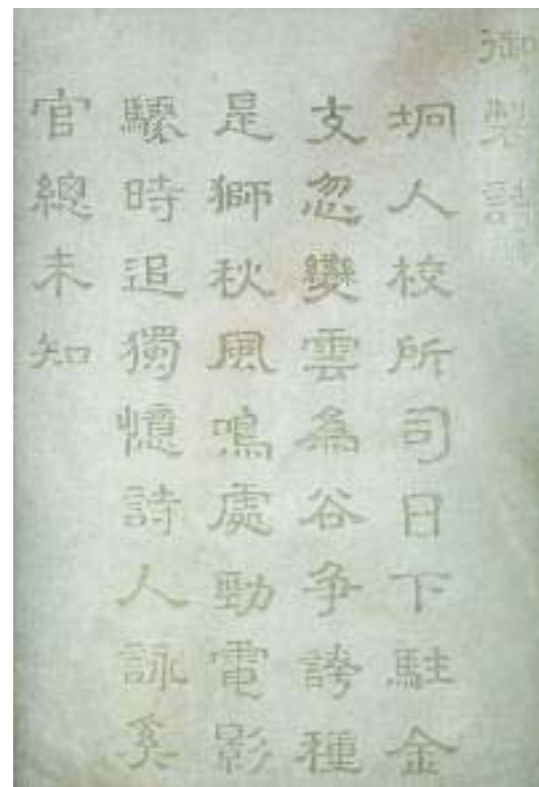 御製詩
坰人校所司日下駐金
支忽變雲為谷争誇種
是獅秋風鳴處勁電影
驟時追獨憶詩人詠奚
官總未知